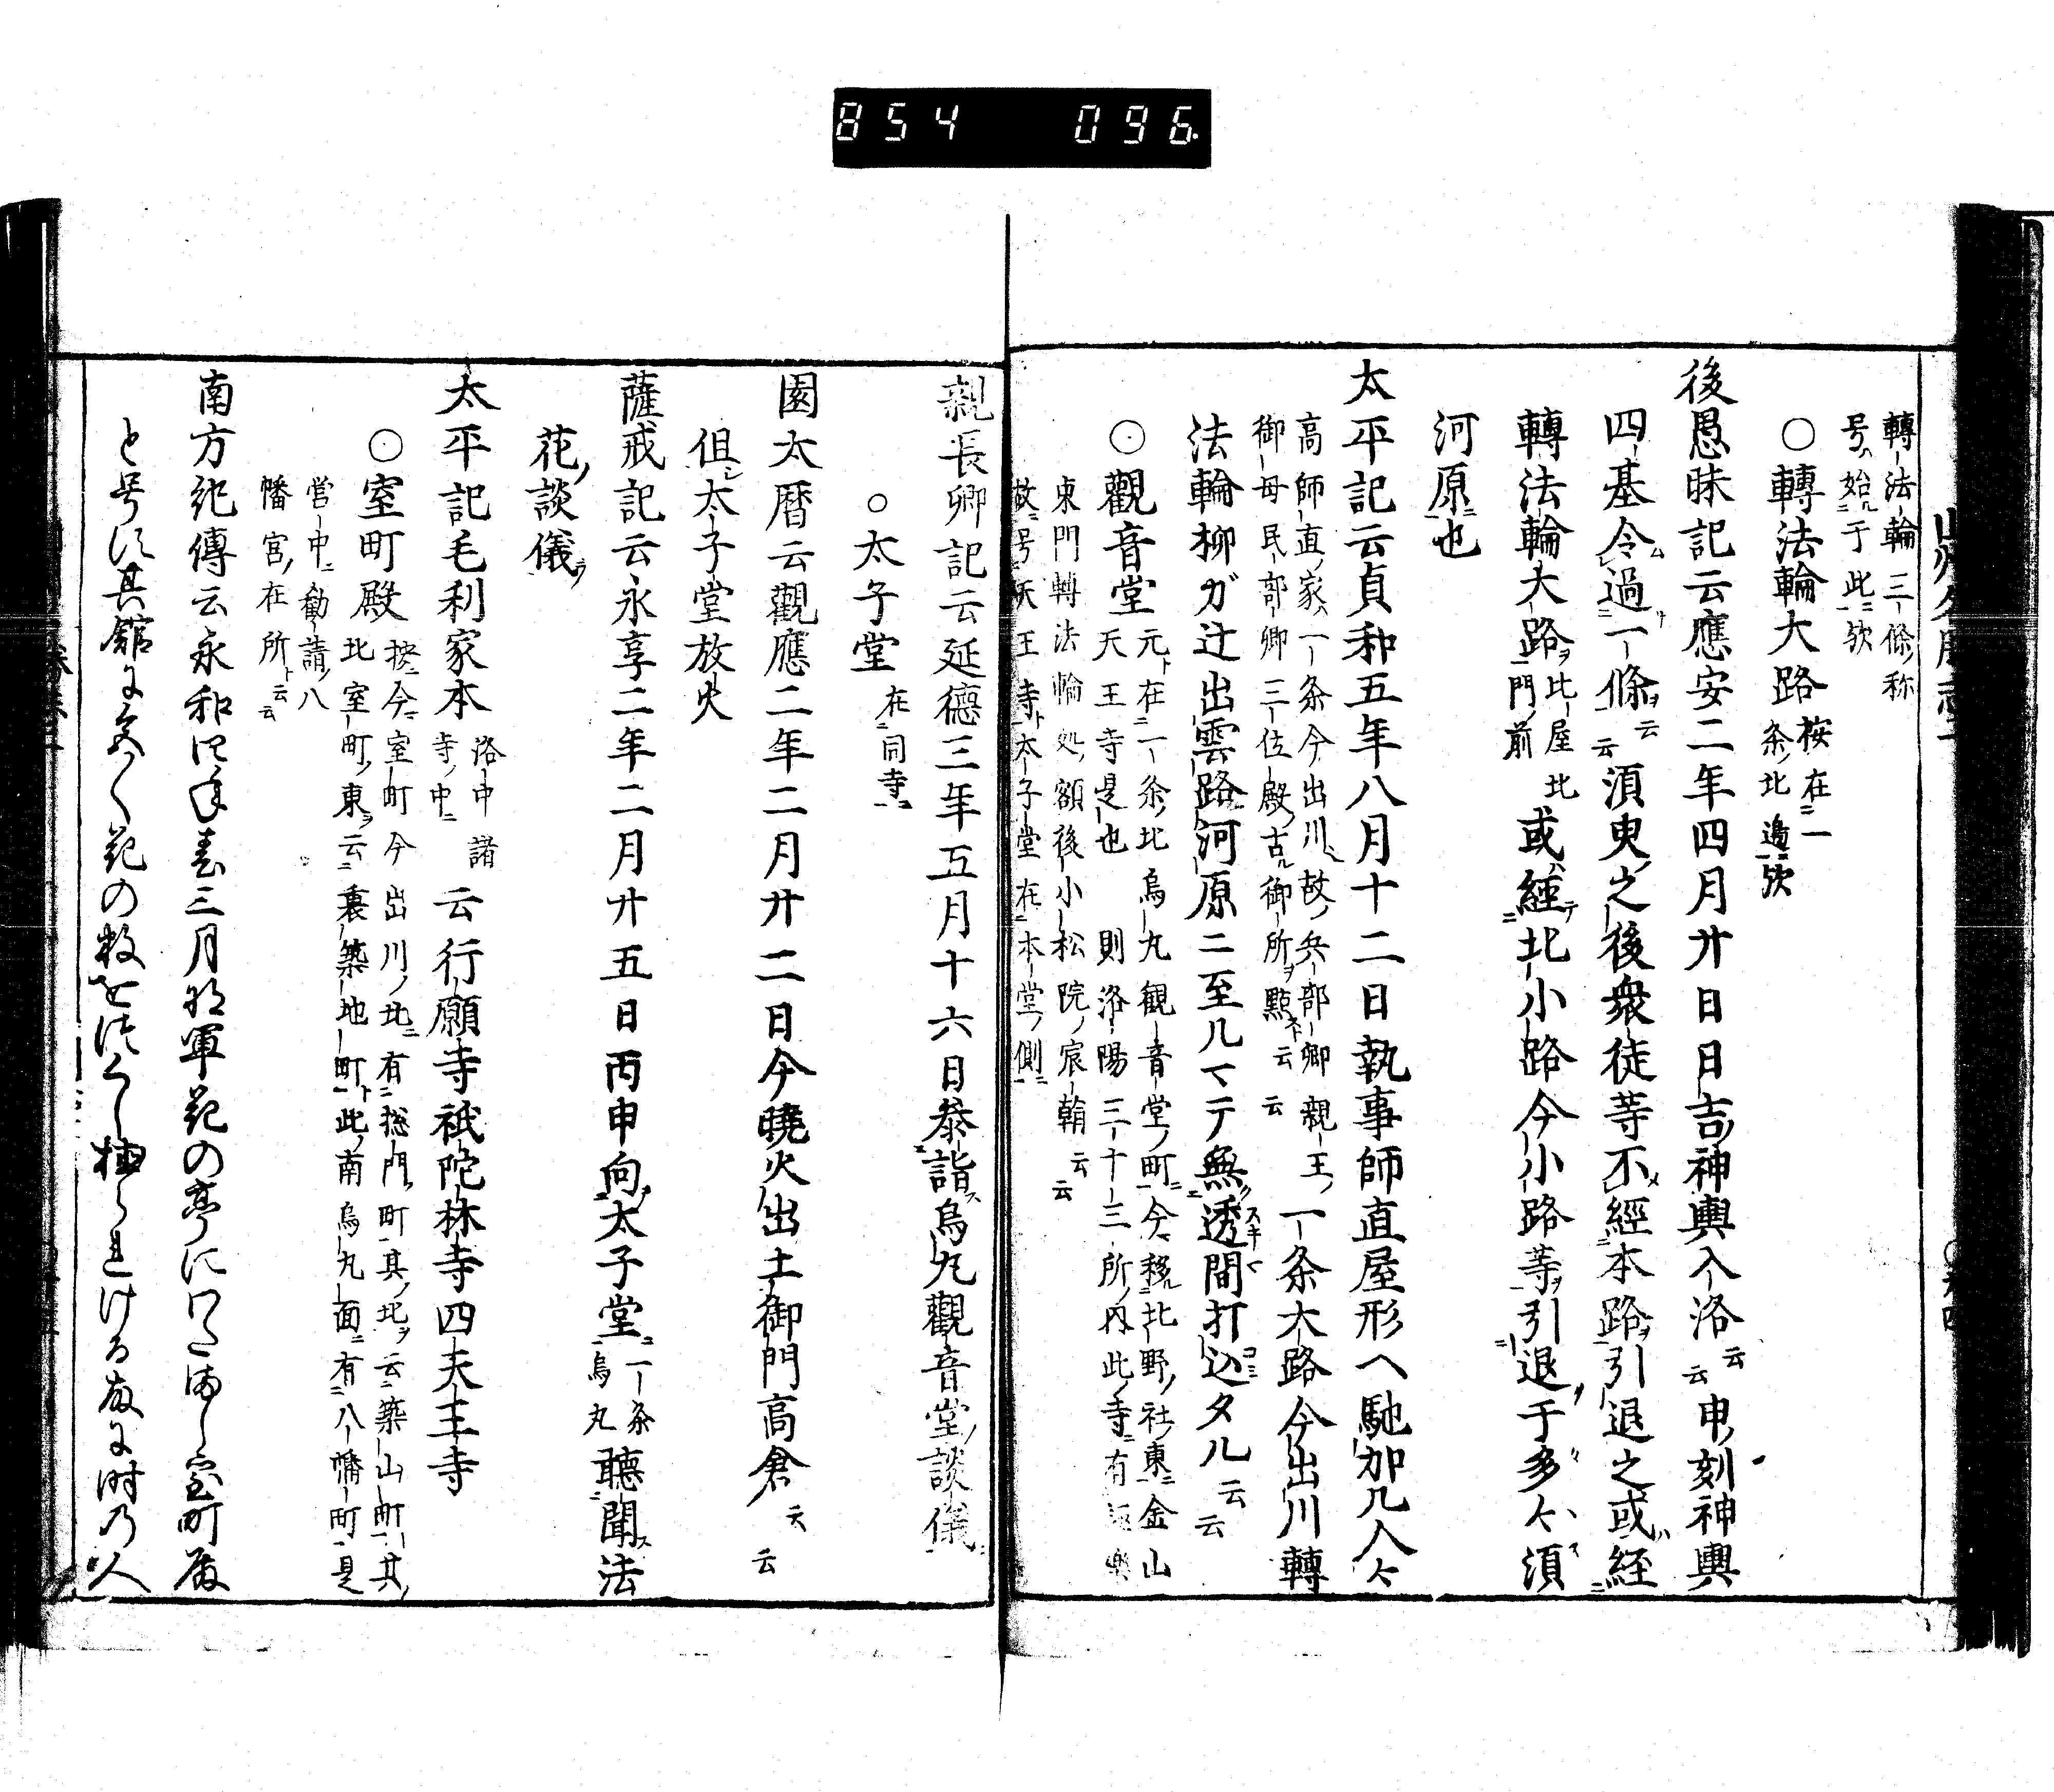 854 096
轉法輪三條称
号始于此歟
〇轉法輪大路 按在一
条北邉歟
後愚昧記云應安二年四月廿日日吉神輿入洛云云申刻神輿
四基令過一條云云須臾之後衆徒等不經本路引退之或経
轉法輪大路此屋北門前或經北小路今小路等引退于多々須
河原也
太平記云貞和五年八月十二日執事師直屋形ヘ馳加ル人々
高師直家ハ一条今出川故兵部卿親王ノ
御母民部卿三位殿古御所ヲ點ス云云
一条大路今出川轉
法輪柳ガ辻出雲路河原ニ至ルマテ無透間打込タル云云
〇觀音堂 元在一条北烏丸観音堂町今移北野社東金山
天王寺是也 則洛陽三十三所内此寺有
東門轉法輪処額後小松院宸翰云云
故号天王寺太子堂在本堂側
親長卿記云延德三年五月十六日叅詣烏丸觀音堂談儀
〇太子堂 在同寺
園太暦云觀應二年二月廿二日今曉火出土御門高倉云云
但太子堂放火
薩戒記云永享二年二月廿五日丙申向太子堂一条烏丸聽聞法
花談儀
太平記毛利家本 洛中諸寺中 云行願寺祇陀林寺四天王寺
〇室町殿 按今室町今出川北有揔門町其北云築山町其
北室町東云裏築地町此南烏丸面有八幡町是
営中勧請八
幡宮在所云云
南方紀傳云永和四年春三月将軍花の亭にわたまし室町殿
と号す其館に多く花の数をつくし植られける故に時乃人